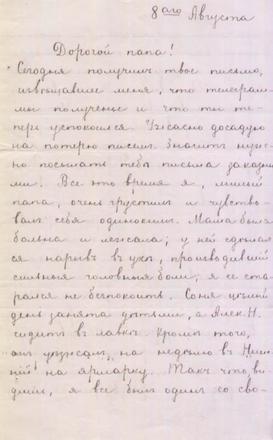 8ᵃᵍᵒ Августа
Дорогой папа!
Сегодня получилъ твое письмо,
извѣщавшее меня, что телеграм-
мы получены и что ты те-
перь успокоился. Ужасно досадую
на потерю писемъ. Значитъ нужно
посылать тебѣ письма заказны-
ми. Все это время я, милый
папа, очень грустилъ и чувство-
валъ себя одинокимъ. Мама была
больна и лежала; у ней сдѣлал-
ся нарывъ въ ухѣ, производившій
сильныя головныя боли; я ее ста-
рался не безпокоить. Соня цѣлый
день занята дѣтьми, а Алек. Н.
сидитъ въ лавкѣ. Кромѣ того,
онъ уѣзжалъ на недѣлю въ Ниж-
ній на ярмарку. Такъ что, ви-
дишь, я все былъ одинъ со сво-